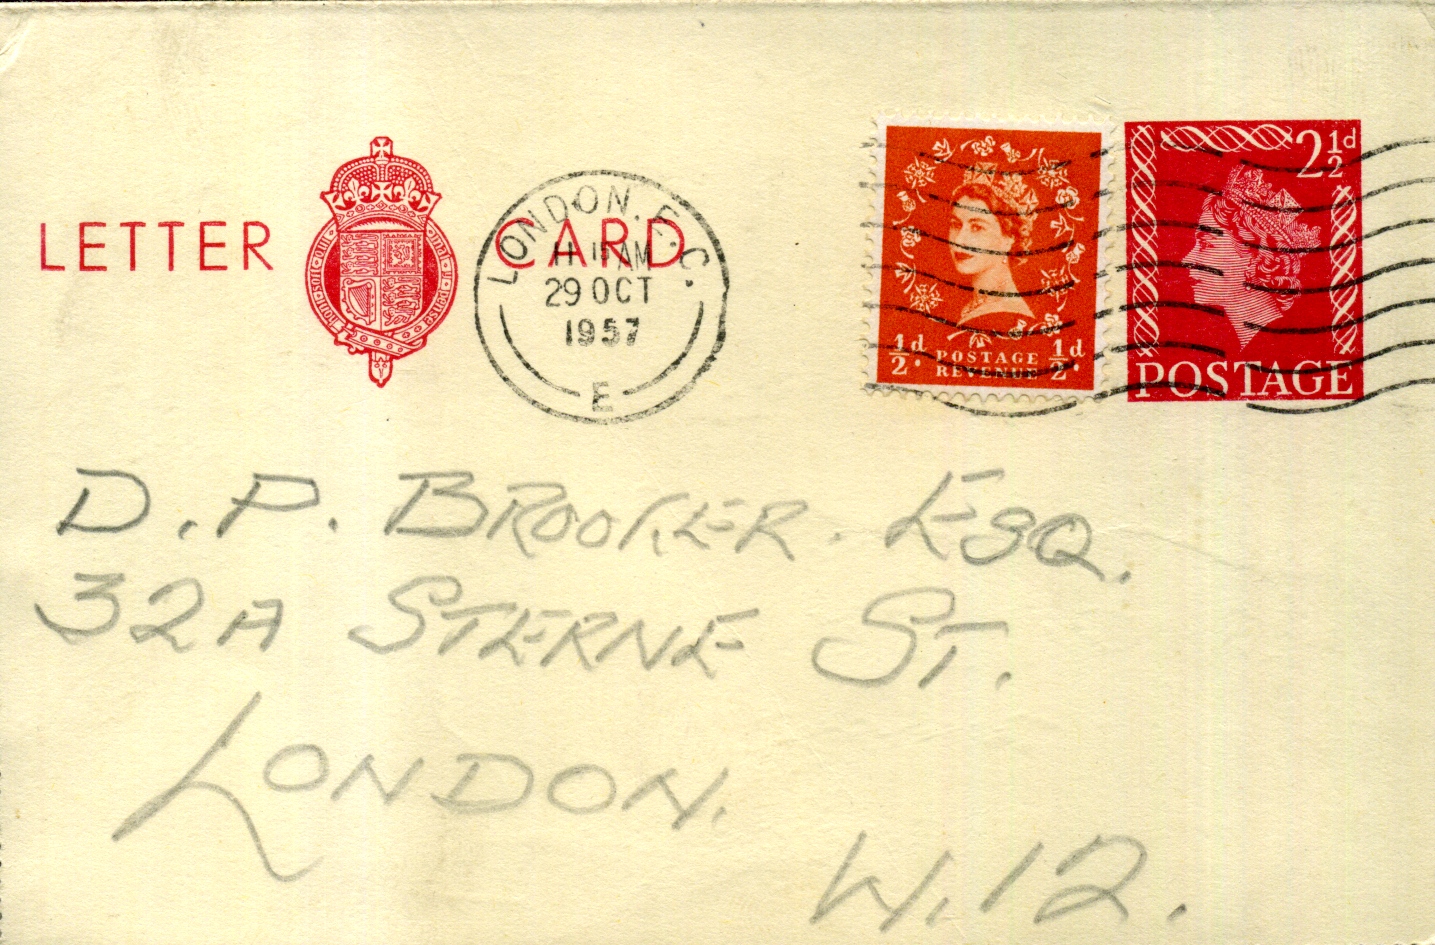 LETTER CARD
HONI·SOIT·QUI· MAL·Y· PENSE
LONDON. E. C.
11 15 AM
29 OCT
1957
E
½d. POSTAGE REVENUE ½d.
2½d
POSTAGE
D. P. BROOKER. ESQ.
32A STERNE ST.
LONDON.
W.12.